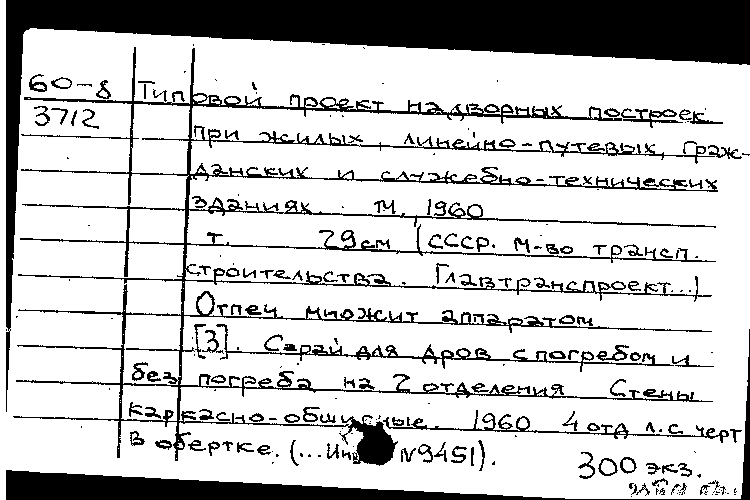 60-8 Типовой проект надворных построек
3712 при жилых, линейно-путевых, граж-
данских и служебно-технических
зданиях. М., 1960
т. 29см (СССР. М-во трансп.
строительства. Главтранспроект...)
Отпеч множит аппаратом
[3]. Сарай для дров с погребом и
без погреба на 2 отделения Стены
каркасно-обшивные. 1960 4 отд л. с. черт
в обертке. (...Инв №9451).
300 экз.